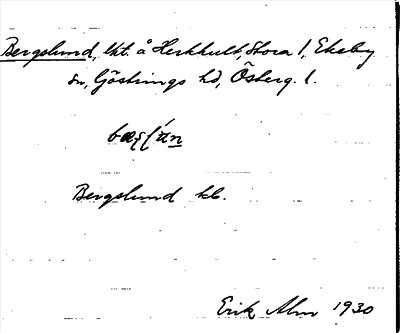 Bergslund, lht. å Herkhult, Stora 1, Ekeby
sn, Göstrings hd, Österg. l.
Bergslund kb.
Erik Alm 1930